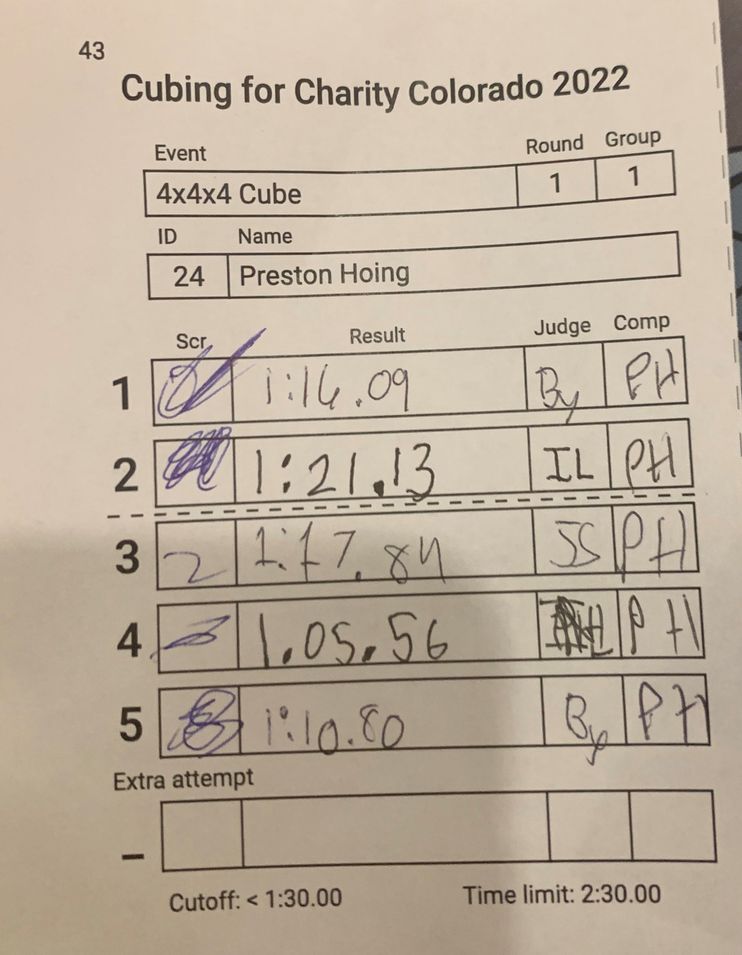 43
Cubing for Charity Colorado 2022
Event Round Group
4x4x4 Cube 1 1
ID Name
24 Preston Hoing
Scr Result Judge Comp
1 1:16.09 By PH
2 1:21.13 IL PH
3 2 1:17.84 JS PH
4 1.05.56 PH
5 1:10.80 By PH
Extra attempt
–
Cutoff: < 1:30.00 Time limit: 2:30.00